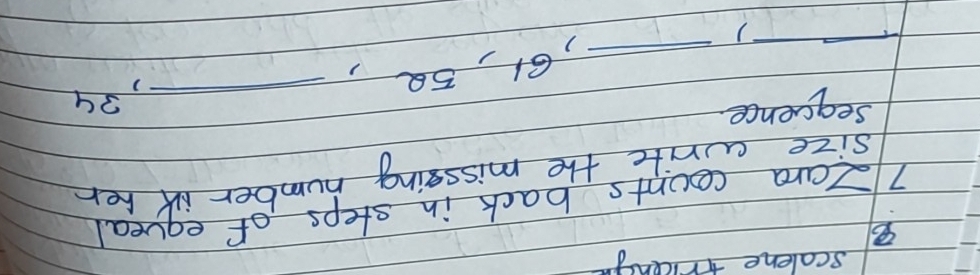 scalene
8
7 Zara counts back in steps of equal
size write the missing number in her
sequence
____, ____, 61, 52, ____, 34